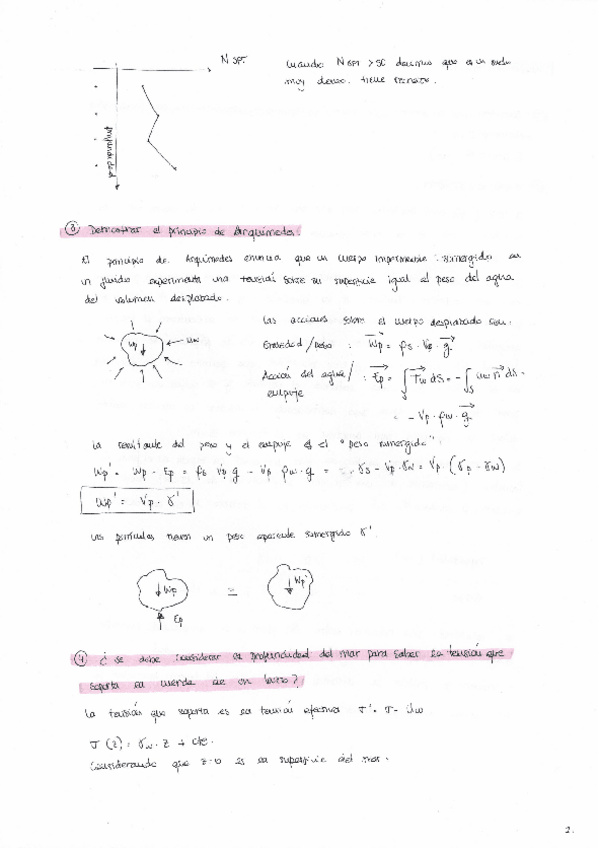 N SPT
Cuando N SPT > 50 decimos que es un suelo
muy denso. tiene rechazo.
profundidad
③ Demostrar el principio de Arquímedes.
El principio de Arquímedes enuncia que un cuerpo impermeable sumergido en
un fluido experimenta una tensión sobre su superficie igual al peso del agua
del volumen desplazado.
Las acciones sobre el cuerpo desplazado son:
Wp
uw
Gravedad/peso : Wp = ρs · Vp · g
Acción del agua/ : Ep = ∫s Tw dS = - ∫s uw n dS =
empuje
= - Vp · ρw · g
La resultante del peso y el empuje es el "peso sumergido":
Wp' = Wp - Ep = ρs Vp g - Vp ρw · g = γs - Vp · γw = Vp · (γp - γw)
Wp' = Vp · γ'
Las partículas tienen un peso aparente sumergido γ'.
Wp = Wp'
Ep
④ ¿ Se debe considerar la profundidad del mar para saber la tensión que
soporta la cuerda de un buzo?
La tensión que soporta es la tensión efectiva σ' = σ - uw
σ (z) = γw · z + cte.
Considerando que z=0 es la superficie del mar.
2.